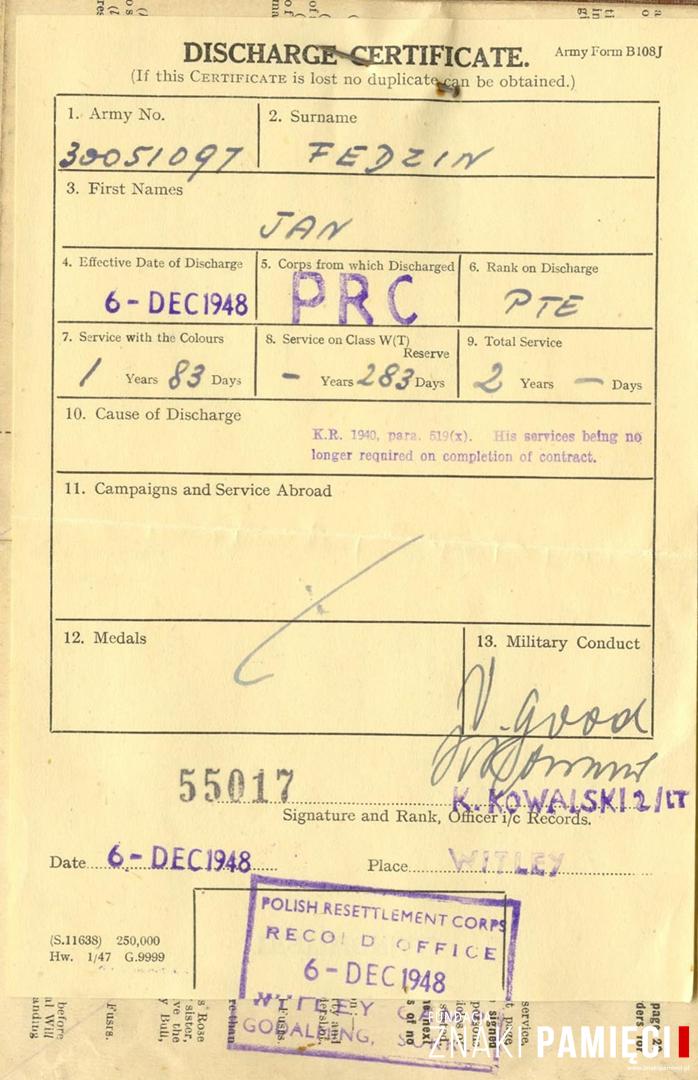 DISCHARGE CERTIFICATE. Army Form B108J
(If this CERTIFICATE is lost no duplicate can be obtained.)
1. Army No.
30051097
2. Surname
FEDZIN
3. First Names
JAN
4. Effective Date of Discharge
6-DEC1948
5. Corps from which Discharged
PRC
6. Rank on Discharge
PTE
7. Service with the Colours
1 Years 83 Days
8. Service on Class W(T)
Reserve
- Years 283 Days
9. Total Service
2 Years - Days
10. Cause of Discharge
K.R. 1940, para. 519(x). His services being no
longer required on completion of contract.
11. Campaigns and Service Abroad
12. Medals
13. Military Conduct
V. good
55017
K. KOWALSKI 2/LT
Signature and Rank, Officer i/c Records.
Date 6-DEC1948 Place WITLEY
POLISH RESETTLEMENT CORPS
RECORD OFFICE
6-DEC1948
WITLEY
GODALMING,
(S.11638) 250,000
Hw. 1/47 G.9999
before
al Will
anding
Fusrs.
s' Rose
sister,
ve the
y Bull,
re than
Fusrs
service.
page 2
FUNDACJA
ZNAKI PAMIĘCI
www.znakipamieci.pl